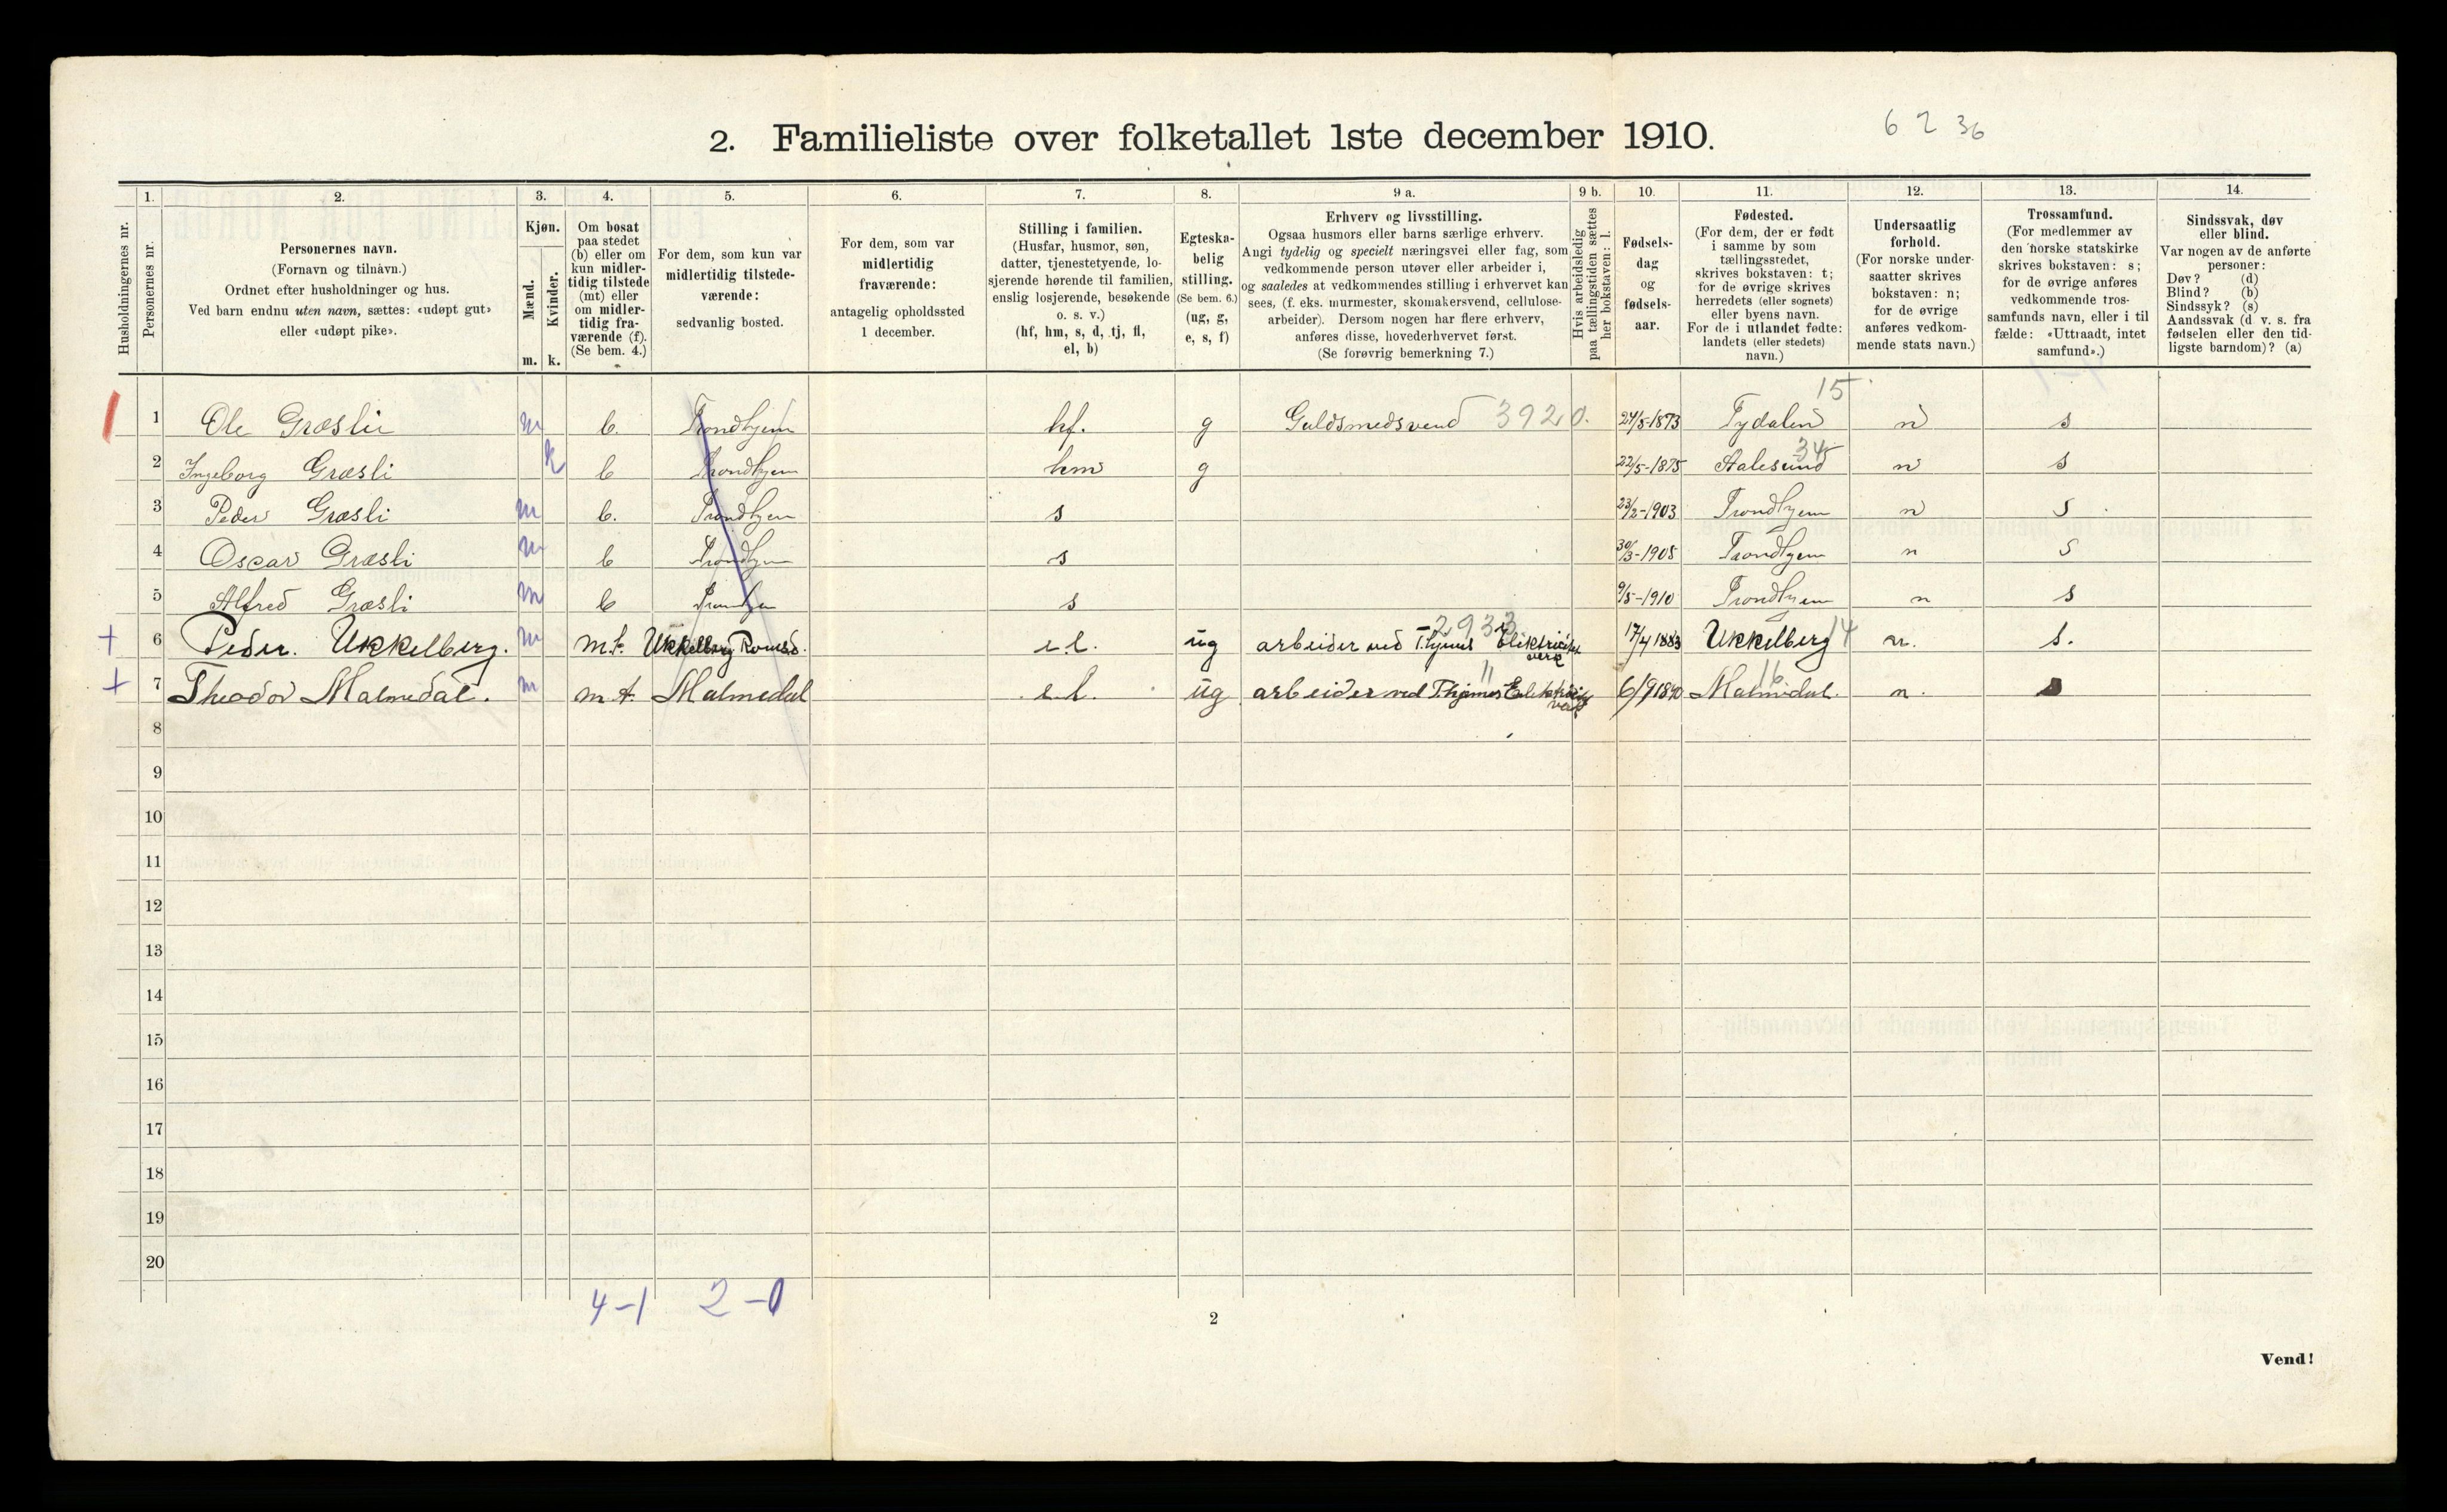 2. Familieliste over folketallet 1ste december 1910.
6 2 36
Husholdningernes nr.
1.
Personernes nr.
2.
Personernes navn.
(Fornavn og tilnavn.)
Ordnet efter husholdninger og hus.
Ved barn endnu uten navn, sættes: «udøpt gut»
eller «udøpt pike».
3.
Kjøn.
Mænd.
Kvinder.
m. k.
4.
Om bosat
paa stedet
(b) eller om
kun midler-
tidig tilstede
(mt) eller
om midler-
tidig fra-
værende (f).
(Se bem. 4.)
5.
For dem, som kun var
midlertidig tilstede-
værende:
sedvanlig bosted.
6.
For dem, som var
midlertidig
fraværende:
antagelig opholdssted
1 december.
7.
Stilling i familien.
(Husfar, husmor, søn,
datter, tjenestetyende, lo-
sjerende hørende til familien,
enslig losjerende, besøkende
o. s. v.)
(hf, hm, s, d, tj, fl,
el, b)
8.
Egteska-
belig
stilling.
(Se bem. 6.)
(ug, g,
e, s, f)
9 a.
Erhverv og livsstilling.
Ogsaa husmors eller barns særlige erhverv.
Angi tydelig og specielt næringsvei eller fag, som
vedkommende person utøver eller arbeider i,
og saaledes at vedkommendes stilling i erhvervet kan
sees, (f. eks. murmester, skomakersvend, cellulose-
arbeider). Dersom nogen har flere erhverv,
anføres disse, hovederhvervet først.
(Se forøvrig bemerkning 7.)
9 b.
Hvis arbeidsledig
paa tællingstiden sættes
her bokstaven: l.
10.
Fødsels-
dag
og
fødsels-
aar.
11.
Fødested.
(For dem, der er født
i samme by som
tællingsstedet,
skrives bokstaven: t;
for de øvrige skrives
herredets (eller sognets)
eller byens navn.
For de i utlandet fødte:
landets (eller stedets)
navn.)
12.
Undersaatlig
forhold.
(For norske under-
saatter skrives
bokstaven: n;
for de øvrige
anføres vedkom-
mende stats navn.)
13.
Trossamfund.
(For medlemmer av
den norske statskirke
skrives bokstaven: s;
for de øvrige anføres
vedkommende tros-
samfunds navn, eller i til
fælde: «Uttraadt, intet
samfund».)
14.
Sindssvak, døv
eller blind.
Var nogen av de anførte
personer:
Døv? (d)
Blind? (b)
Sindssyk? (s)
Aandssvak (d. v. s. fra
fødselen eller den tid-
ligste barndom)? (a)
15
1 Ole Græsli m b. Trondhjem hf. g Guldsmedsvend 3920. 24/5-1873 Tydalen n s
34
2 Ingeborg Græsli k b Trondhjem hm g 22/5-1875 Aalesund n s
3 Peder Græsli m b. Trondhjem s 23/2-1903 Trondhjem n s
4 Oscar Græsli m b Trondhjem s 30/3-1908 Trondhjem n s
5 Alfred Græsli m b Trondhjem s 9/5-1910 Trondhjem n s
2933
+ 6 Peder. Ukkelberg. m m.t. Ukkelberg Romsd. e.l. ug arbeider ved Thjems Elektricitets verk 17/4 1883 Ukkelberg 14 n. s.
" 16
+ 7 Theodor Malmedal. m m.t. Malmedal e.l. ug arbeider ved Thjems Elektricitets verk 6/9 1890 Malmedal. n. s
8
9
10
11
12
13
14
15
16
17
18
19
20
4-1 2-0
2
Vend!